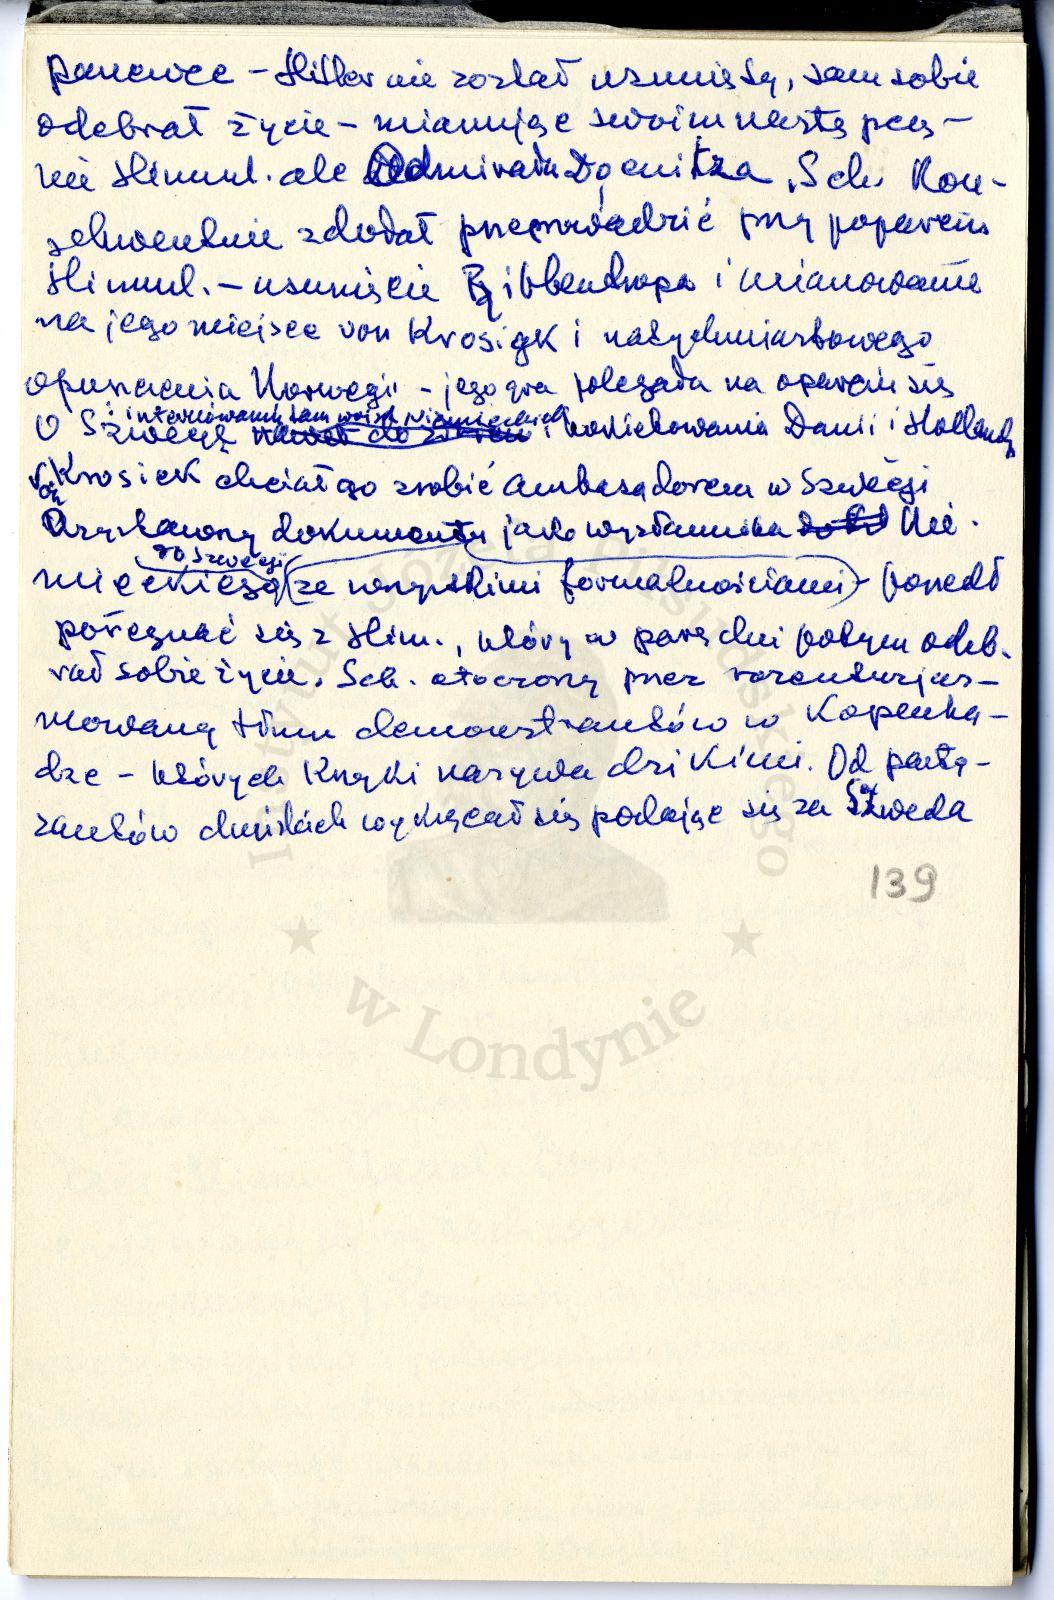 panewce – Hitler nie został usunięty, sam sobie
odebrał życie – mianując swoim następcą –
nie Himml. ale Admirała Doenitza. Sch. Kon-
sekwentnie zdołał przeprowadzić przy poparciu
Himml. – usunięcie Ribbentropa i mianowanie
na jego miejsce von Krosigk i natychmiastowego
opuszczenia Norwegii – jego gra polegała na oparciu się
i internowaniu tam wojsk niemieckich
O Szwecję i Danii i Holandii
von Krosiek chciał go zrobić Ambasadorem w Szwecji
dokumenty jako wysłannika Nie-
do Szwecji
mieckiego (ze wszystkimi formalnościami) – poszedł
pożegnać się z Him., który w parę dni potym odeb-
rał sobie życie. Sch. otoczony przez rozentuzjaz-
mowany tłum demonstrantów w Kopenha-
dze – których Knyki nazywa dzikimi. Od party-
zantów duńskich wykręcał się podając się za Szweda
139
Instytut Józefa Piłsudskiego
★ w Londynie ★